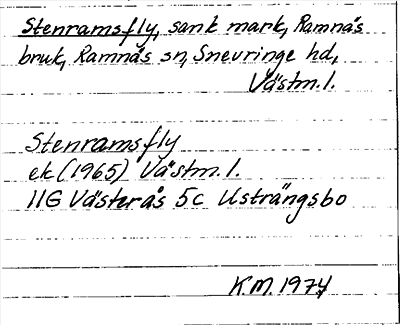 Stenramsfly, sank mark, Ramnäs
bruk, Ramnäs sn, Snevringe hd,
Västm.l.
Stenramsfly
ek (1965) Västm.l.
11G Västerås 5c Usträngsbo
K.M. 1974